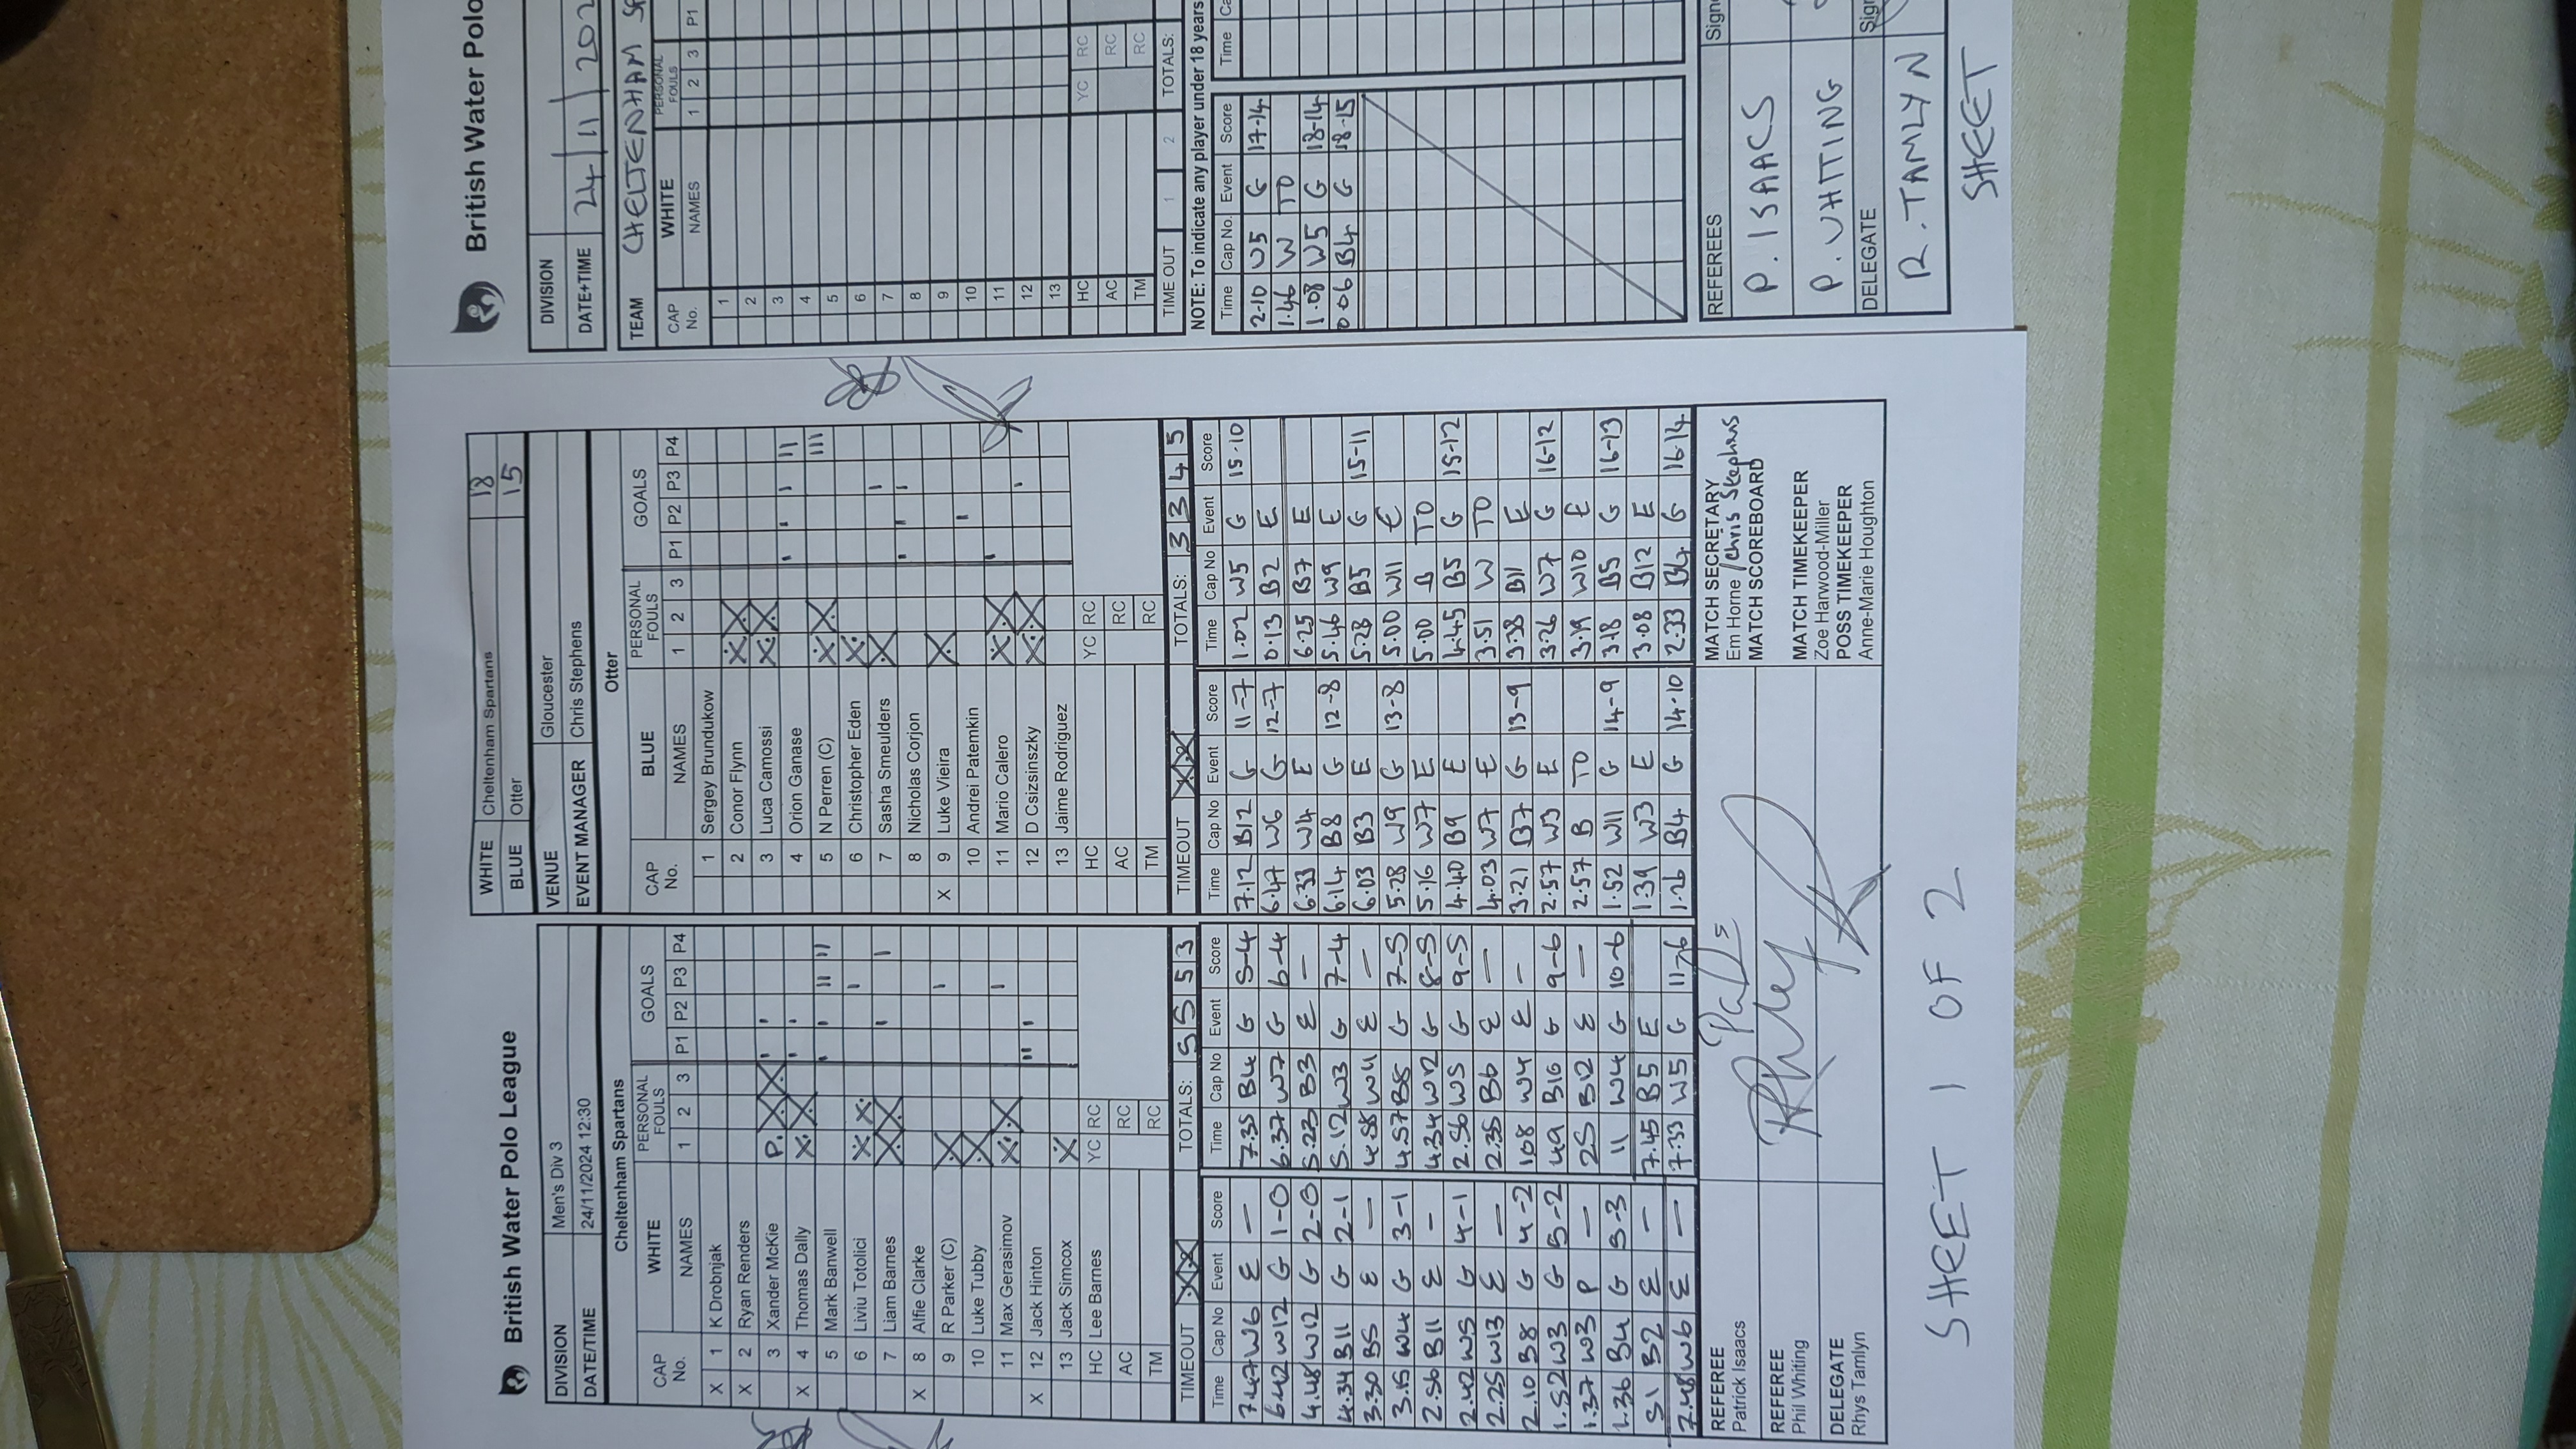 British Water Polo League
WHITE Cheltenham Spartans 18
BLUE Otter 15
DIVISION Men's Div 3
DATE/TIME 24/11/2024 12:30
VENUE Gloucester
EVENT MANAGER Chris Stephens
Cheltenham Spartans
CAP No. WHITE NAMES PERSONAL FOULS 1 2 3 GOALS P1 P2 P3 P4
X 1 K Drobnjak
X 2 Ryan Renders
3 Xander McKie
X 4 Thomas Dally
5 Mark Banwell
6 Liviu Totolici
7 Liam Barnes
X 8 Alfie Clarke
9 R Parker (C)
10 Luke Tubby
11 Max Gerasimov
X 12 Jack Hinton
13 Jack Simcox
HC Lee Barnes YC RC
AC RC
TM RC
TIMEOUT TOTALS: 5 5 5 3
Otter
CAP No. BLUE NAMES PERSONAL FOULS 1 2 3 GOALS P1 P2 P3 P4
1 Sergey Brundukow
2 Conor Flynn
3 Luca Camossi
4 Orion Ganase
5 N Perren (C)
6 Christopher Eden
7 Sasha Smeulders
8 Nicholas Corjon
X 9 Luke Vieira
10 Andrei Patemkin
11 Mario Calero
12 D Csizsinszky
13 Jaime Rodriguez
HC YC RC
AC RC
TM RC
TIMEOUT TOTALS: 3 3 4 5
Time Cap No Event Score
7.47 W6 E —
6.42 W12 G 1-0
4.48 W12 G 2-0
4.34 B11 G 2-1
3.30 B5 E —
3.15 W4 G 3-1
2.50 B11 E -
2.42 W5 G 4-1
2.25 W13 E —
2.10 B8 G 4-2
1.52 W3 G 5-2
1.37 W3 P —
1.36 B4 G 5-3
51 B2 E —
7.48 W6 E —
Time Cap No Event Score
7.35 B4 G 5-4
6.37 W7 G 6-4
5.23 B3 E —
5.12 W3 G 7-4
4.58 W4 E —
4.57 B8 G 7-5
4.34 W12 G 8-5
2.56 W5 G 9-5
2.35 B6 E —
108 W4 E -
49 B10 G 9-6
25 B12 E —
11 W4 G 10-6
7.45 B5 E
7.33 W5 G 11-6
Time Cap No Event Score
7.12 B12 G 11-7
6.47 W6 G 12-7
6.33 W4 E
6.14 B8 G 12-8
6.03 B3 E
5.28 W9 G 13-8
5.16 W7 E
4.40 B9 E
4.03 W7 E
3.21 B7 G 13-9
2.57 W3 E
2.57 B TO
1.52 W11 G 14-9
1.39 W3 E
1.26 B4 G 14-10
Time Cap No Event Score
1.02 W5 G 15-10
0.13 B2 E
6.25 B7 E
5.46 W9 E
5.28 B5 G 15-11
5.00 W11 E
5.00 B TO
4.45 B5 G 15-12
3.51 W TO
3.38 B11 E
3.26 W7 G 16-12
3.19 W10 E
3.18 B5 G 16-13
3.08 B12 E
2.33 B4 G 16-14
REFEREE
Patrick Isaacs
REFEREE
Phil Whiting
DELEGATE
Rhys Tamlyn
MATCH SECRETARY
Em Horne / Chris Stephens
MATCH SCOREBOARD
MATCH TIMEKEEPER
Zoe Harwood-Miller
POSS TIMEKEEPER
Anne-Marie Houghton
SHEET 1 OF 2
British Water Polo
DIVISION
DATE+TIME 24/11/202
TEAM CHELTENHAM
CAP No. WHITE NAMES PERSONAL FOULS 1 2 3 P1
1
2
3
4
5
6
7
8
9
10
11
12
13
HC YC RC
AC RC
TM RC
TIME OUT 1 2 TOTALS:
NOTE: To indicate any player under 18 years
Time Cap No. Event Score Time Ca
2.10 W5 G 17-14
1.46 W TO
1.08 W5 G 18-14
0.06 B4 G 18-15
REFEREES
P. ISAACS
P. WHITING
DELEGATE
R. TAMLYN
SHEET